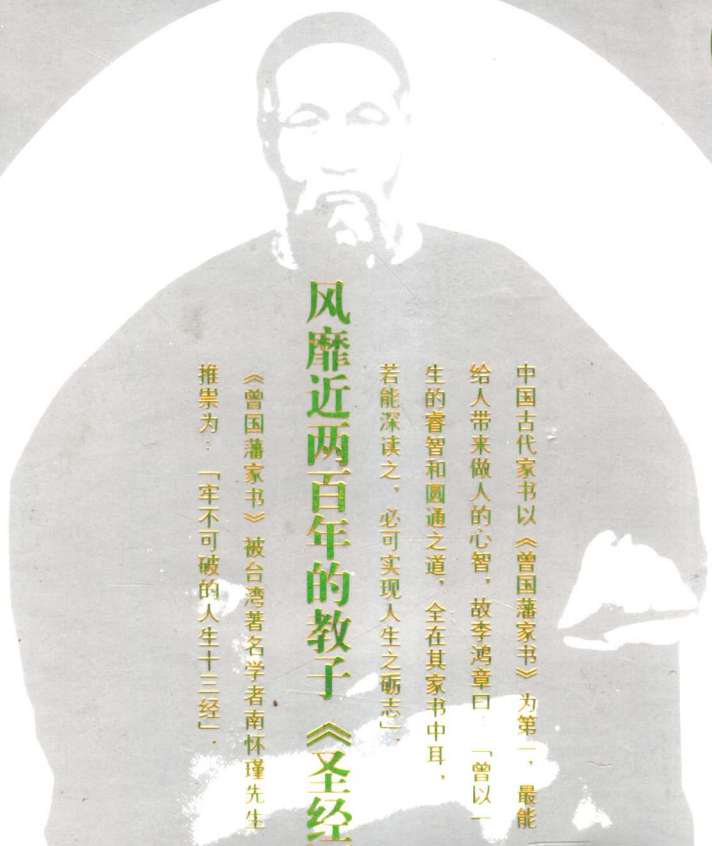 中国古代家书以《曾国藩家书》为第一，最能
给人带来做人的心智，故李鸿章曰：「曾以一
生的睿智和圆通之道，全在其家书中耳，
若能深读之，必可实现人生之砺志」．
风靡近两百年的教子《圣经
《曾国藩家书》被台湾著名学者南怀瑾先生
推祟为：「牢不可破的人生十三经」．